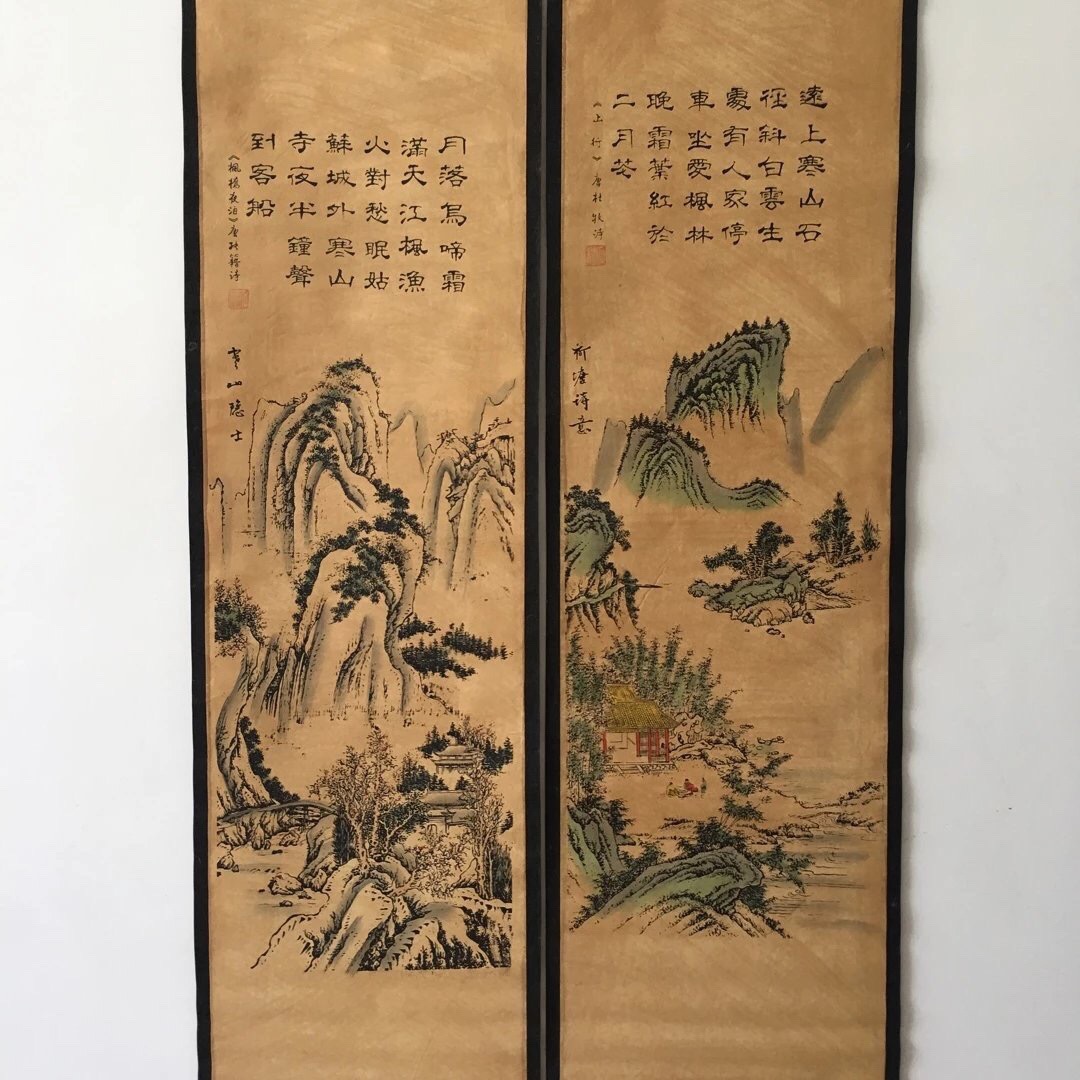 遠上寒山石
徑斜白雲生
處有人家停
車坐愛楓林
晚霜葉紅於
二月花
《山行》唐杜牧詩
塘詩意
月落烏啼霜
滿天江楓漁
火對愁眠姑
蘇城外寒山
寺夜半鐘聲
到客船
《楓橋夜泊》唐張籍诗
山隐士